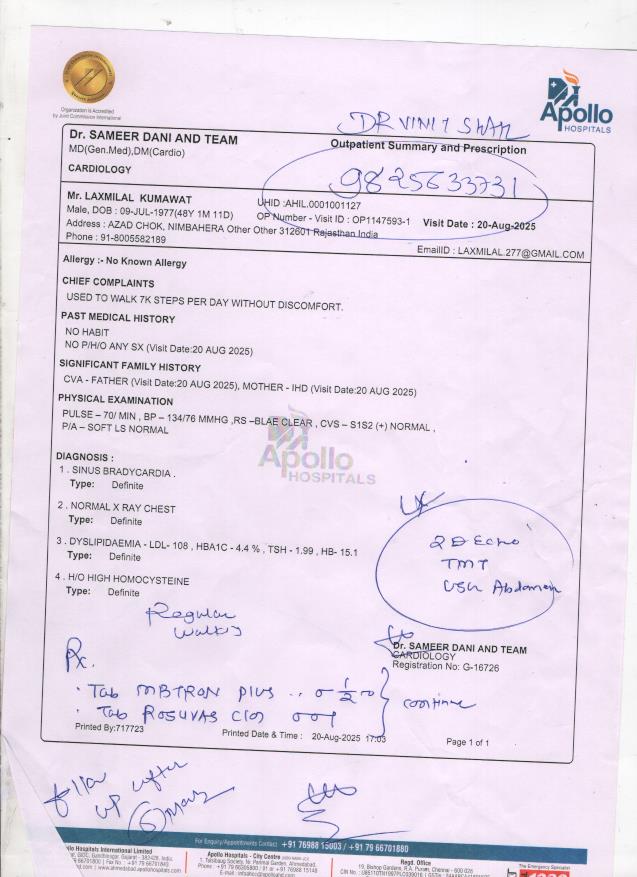 Organization is Accredited
by Joint Commission International
Apollo
HOSPITALS
DR VINIT SHAH
9825633731
Dr. SAMEER DANI AND TEAM
MD(Gen.Med),DM(Cardio)
CARDIOLOGY
Outpatient Summary and Prescription
Mr. LAXMILAL KUMAWAT
Male, DOB : 09-JUL-1977(48Y 1M 11D)
Address : AZAD CHOK, NIMBAHERA Other Other 312601 Rajasthan India
Phone : 91-8005582189
UHID :AHIL.0001001127
OP Number - Visit ID : OP1147593-1 Visit Date : 20-Aug-2025
EmailID : LAXMILAL.277@GMAIL.COM
Allergy :- No Known Allergy
CHIEF COMPLAINTS
USED TO WALK 7K STEPS PER DAY WITHOUT DISCOMFORT.
PAST MEDICAL HISTORY
NO HABIT
NO P/H/O ANY SX (Visit Date:20 AUG 2025)
SIGNIFICANT FAMILY HISTORY
CVA - FATHER (Visit Date:20 AUG 2025), MOTHER - IHD (Visit Date:20 AUG 2025)
PHYSICAL EXAMINATION
PULSE – 70/ MIN , BP – 134/76 MMHG ,RS –BLAE CLEAR , CVS – S1S2 (+) NORMAL ,
P/A – SOFT LS NORMAL
Apollo
HOSPITALS
DIAGNOSIS :
1 . SINUS BRADYCARDIA .
Type: Definite
2 . NORMAL X RAY CHEST
Type: Definite
3 . DYSLIPIDAEMIA - LDL- 108 , HBA1C - 4.4 % , TSH - 1.99 , HB- 15.1
Type: Definite
4 . H/O HIGH HOMOCYSTEINE
Type: Definite
2D Echo
TMT
USG Abdomen
Regular
Dr. SAMEER DANI AND TEAM
CARDIOLOGY
Registration No: G-16726
Rx.
Tab plus 0 1/2 0
Tab ROSUVAS 0 0 1
continue
Printed By:717723
Printed Date & Time : 20-Aug-2025 17:03
Page 1 of 1
up after
6
For Enquiry/Appointments Contact : +91 76988 15003 / +91 79 66701880
Apollo Hospitals International Limited
GIDC, Gandhinagar, Gujarat - 382428, India.
www.ahmedabad.apollohospitals.com
Apollo Hospitals - City Centre
1, Tulsibaug Society, Nr. Parimal Garden, Ahmedabad.
Regd. Office
19, Bishop Gardens, R.A. Puram, Chennai - 600 028
The Emergency Specialist